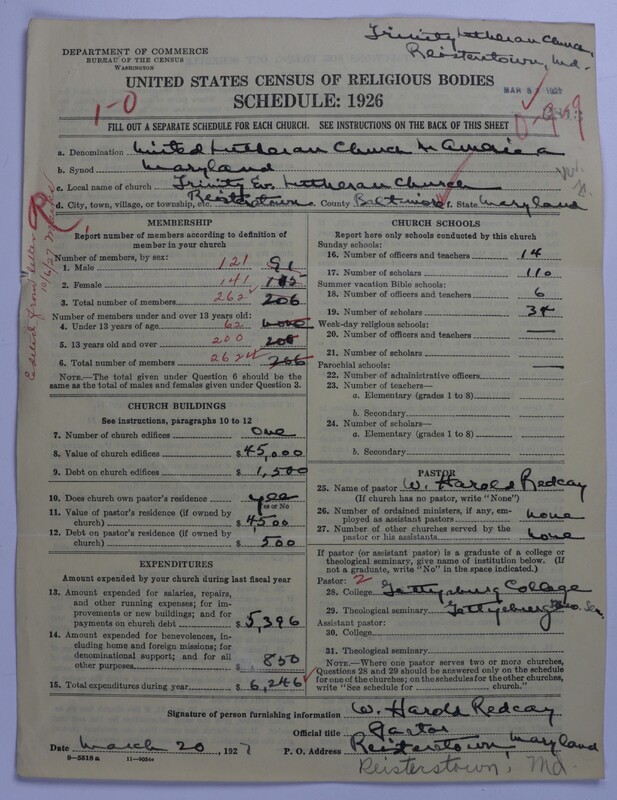 Trinity Lutheran Church,
Reisterstown, Md.
DEPARTMENT OF COMMERCE
BUREAU OF THE CENSUS
WASHINGTON
UNITED STATES CENSUS OF RELIGIOUS BODIES
SCHEDULE: 1926
1-0
FILL OUT A SEPARATE SCHEDULE FOR EACH CHURCH. SEE INSTRUCTIONS ON THE BACK OF THIS SHEET
a. Denomination United Lutheran Church in America
b. Synod Maryland
c. Local name of church Trinity Ev. Lutheran Church
d. City, town, village, or township, etc. Reisterstown County Baltimore State Maryland
MEMBERSHIP
Report number of members according to definition of
member in your church
Number of members, by sex:
1. Male 121 91
2. Female 141 115
3. Total number of members 262 206
Number of members under and over 13 years old:
4. Under 13 years of age 62 none
5. 13 years old and over 200 206
6. Total number of members 262 206
NOTE.—The total given under Question 6 should be
same as the total of males and females given under Question 3.
CHURCH BUILDINGS
See instructions, paragraphs 10 to 12
7. Number of church edifices one
8. Value of church edifices $ 45,000
9. Debt on church edifices $ 1,500
10. Does church own pastor's residence yes
Yes or No
11. Value of pastor's residence (if owned by
church) $ 4500
12. Debt on pastor's residence (if owned by
church) $ 500
EXPENDITURES
Amount expended by your church during last fiscal year
13. Amount expended for salaries, repairs,
and other running expenses; for im-
provements or new buildings; and for
payments on church debt $ 5,396
14. Amount expended for benevolences, in-
cluding home and foreign missions; for
denominational support; and for all
other purposes 850
15. Total expenditures during year $ 6,246
CHURCH SCHOOLS
Report here only schools conducted by this church
Sunday schools:
16. Number of officers and teachers 14
17. Number of scholars 110
Summer vacation Bible schools:
18. Number of officers and teachers 6
19. Number of scholars 34
Week-day religious schools:
20. Number of officers and teachers
21. Number of scholars
Parochial schools:
22. Number of administrative officers
23. Number of teachers—
a. Elementary (grades 1 to 8)
b. Secondary
24. Number of scholars—
a. Elementary (grades 1 to 8)
b. Secondary
PASTOR
25. Name of pastor W. Harold Redcay
(If church has no pastor, write "None")
26. Number of ordained ministers, if any, em-
ployed as assistant pastors none
27. Number of other churches served by the
pastor or his assistants none
If pastor (or assistant pastor) is a graduate of a college or
theological seminary, give name of institution below. (If
not a graduate, write "No" in the space indicated.)
Pastor: 2
28. College Gettysburg College
29. Theological seminary Gettysburg Theo. Sem.
Assistant pastor:
30. College
31. Theological seminary
NOTE.—Where one pastor serves two or more churches,
Questions 28 and 29 should be answered only on the schedule
for one of the churches; on the schedules for the other churches,
write "See schedule for church."
Signature of person furnishing information W. Harold Redcay
Official title Pastor
Date March 20, 1927 P. O. Address Reisterstown, Maryland
8-5518 a
Reisterstown, Md.